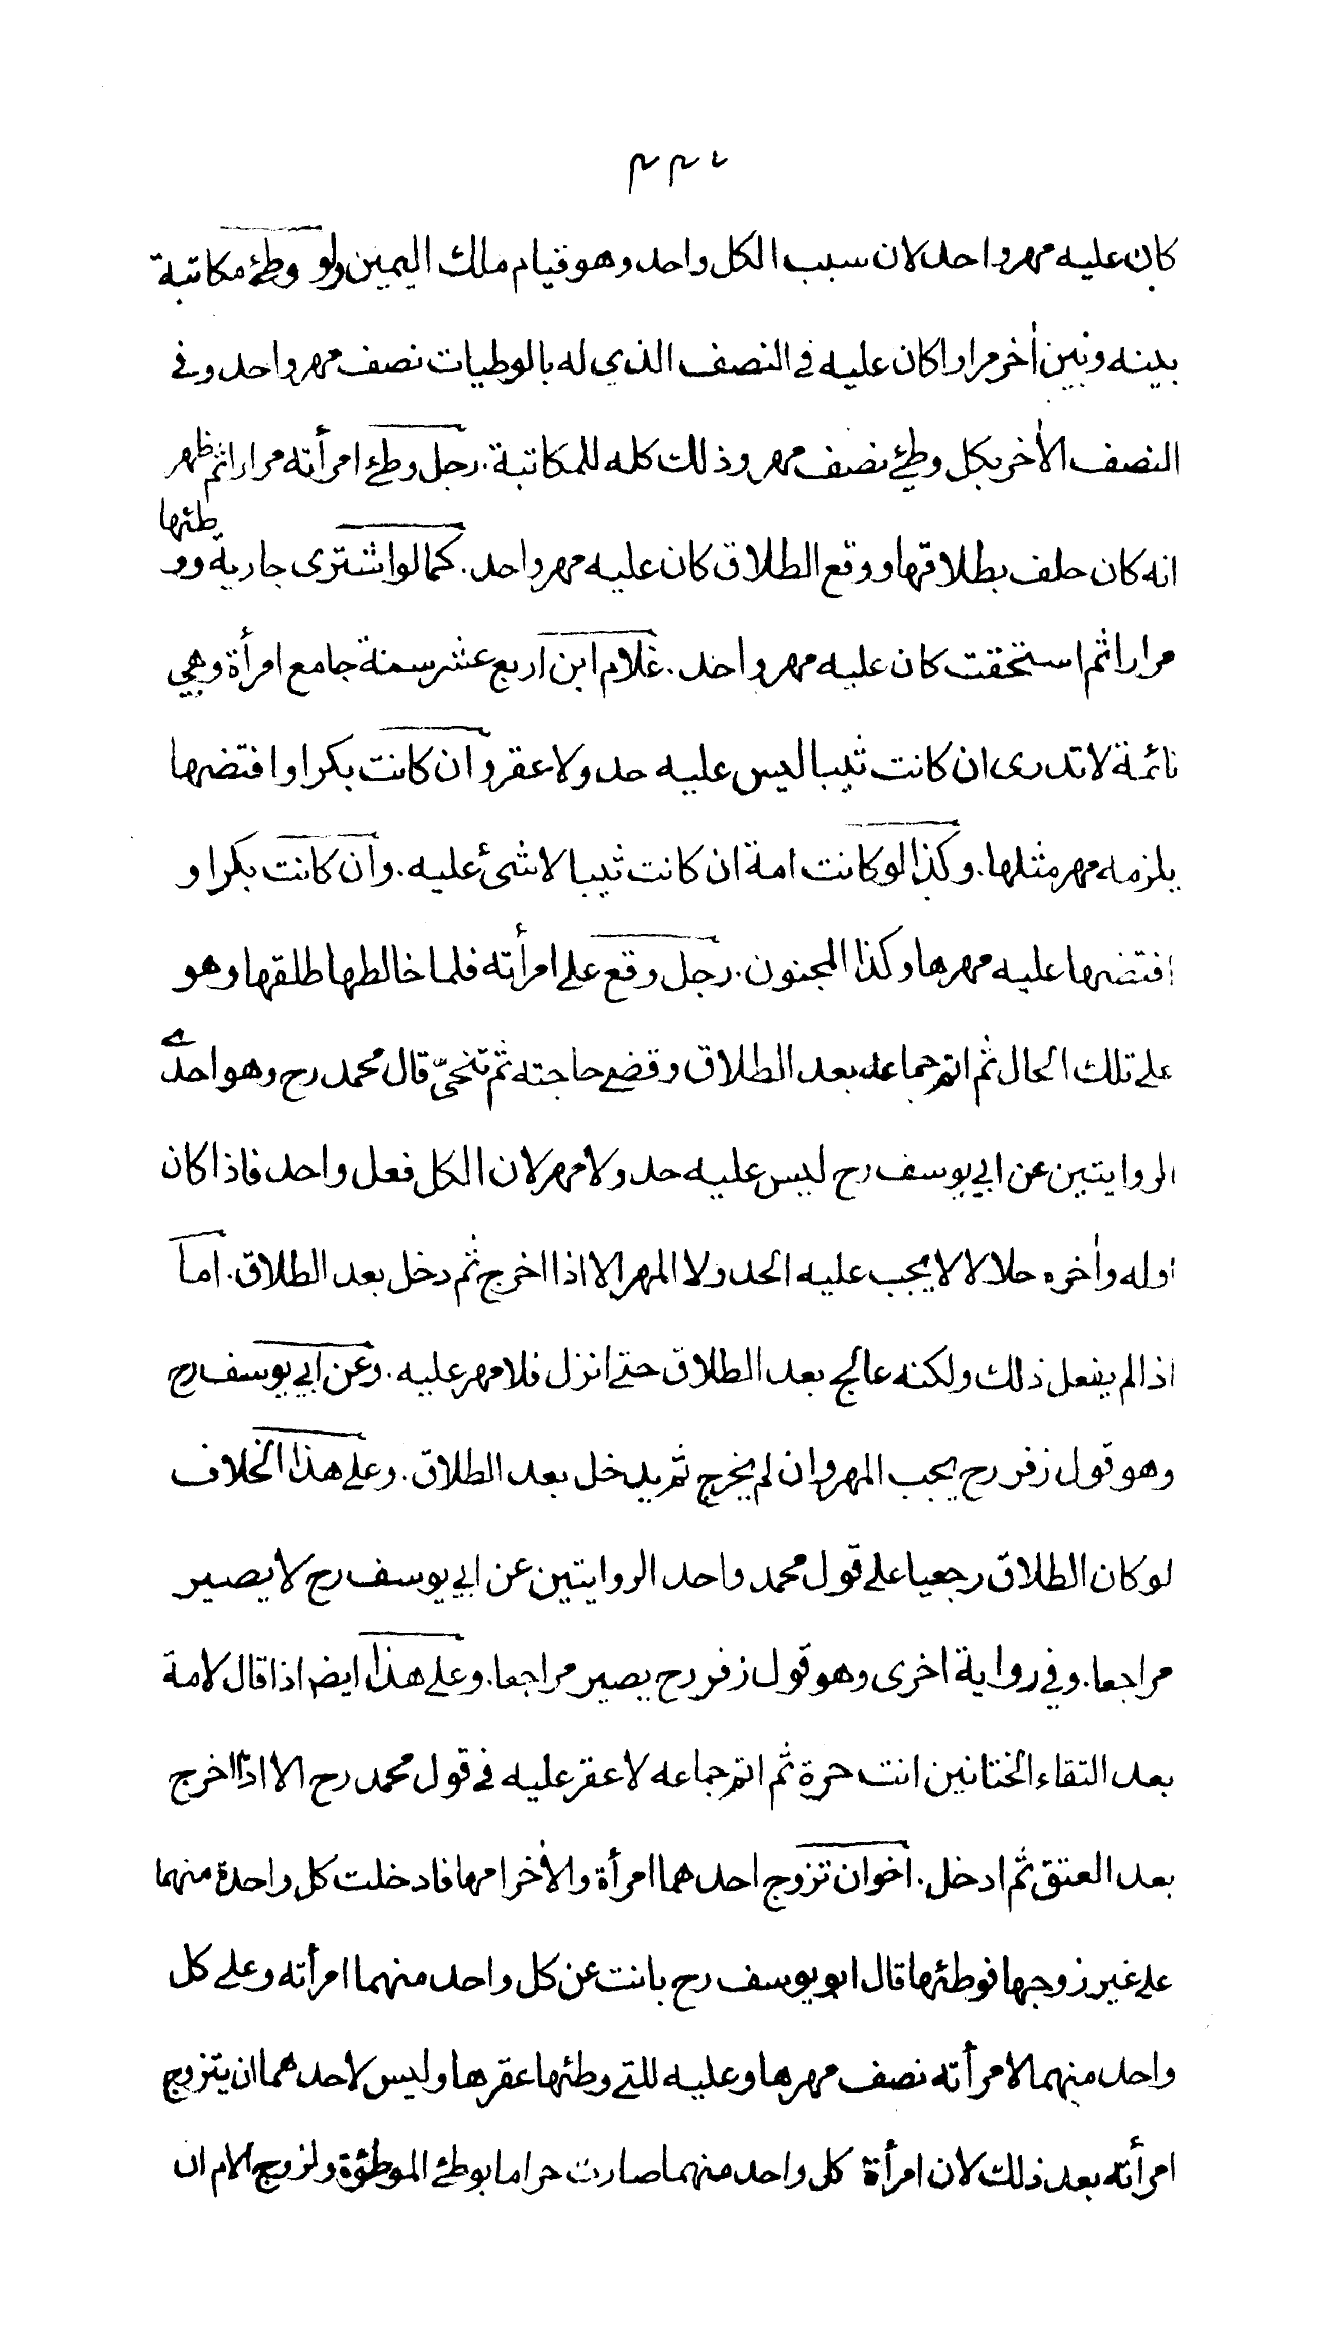 كان عليه مهر واحد لان سبب الكل واحد وهو قيام ملك اليمين ولو وطئ مكاتبة
بينه وبين أخر مرارا كان عليه في النصف الذي له بالوطيات نصف مهر واحد وفي
النصف الأخر بكل وطئ نصف مهر وذلك كله للمكاتبة. رجل وطئ امرأته مرارا ثم ظهر
انه كان حلف بطلاقها ووقع الطلاق كان عليه مهر واحد. كما لو اشترى جارية ووطئها
مرارا ثم استحقت كان عليه مهر واحد. غلام ابن اربع عشر سنة جامع امرأة وهي
نائمة لا تدرى ان كانت ثيبا ليس عليه حد ولا عقر وان كانت بكرا وافتضها
يلزمه مهر مثلها. وكذا لو كانت امة ان كانت ثيبا لا شئ عليه. وان كانت بكرا و
افتضها عليه مهرها وكذا المجنون. رجل وقع على امرأته فلما خالطها طلقها وهو
على تلك الحال ثم اتم جماعه بعد الطلاق وقضى حاجته ثم تنحىّ قال محمد رح وهو احدى
الروايتين عن ابي يوسف رح ليس عليه حد ولا مهر لان الكل فعل واحد فاذا كان
اوله وأخره حلالا لا يجب عليه الحد ولا المهر الا اذا اخرج ثم دخل بعد الطلاق. اما
اذا لم يفعل ذلك ولكنه عالج بعد الطلاق حتى انزل فلا مهر عليه. وعن ابي يوسف رح
وهو قول زفر رح يجب المهر وان لم يخرج ثم يدخل بعد الطلاق. وعلى هذا الخلاف
لو كان الطلاق رجعيا على قول محمد واحد الروايتين عن ابي يوسف رح لا يصير
مراجعا. وفي رواية اخرى وهو قول زفر رح يصير مراجعا. وعلى هذا ايضا اذا قال لامة
بعد التقاء الختانين انت حرة ثم اتم جماعه لا عقر عليه في قول محمد رح الا اذا اخرج
بعد العتق ثم ادخل. اخوان تزوج احدهما امرأة والأخر امها فادخلت كل واحدة منهما
على غير زوجها فوطئها قال ابو يوسف رح بانت عن كل واحد منهما امرأته وعلى كل
واحد منهما لامرأته نصف مهرها وعليه للتي وطئها عقرها وليس لاحدهما ان يتزوج
امرأته بعد ذلك لان امرأة كل واحد منهما صارت حراما بوطئ الموطؤة ولزوج الام ان